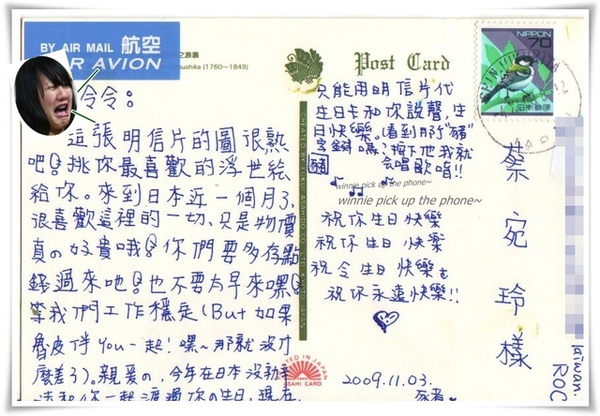 BY AIR MAIL 航空
PAR AVION
之浪裏
(1760〜1849)
Post Card
NIPPON
70
日本郵便
令令：
這張明信片的圖很熟
吧！挑你最喜歡的浮世繪
給你。來到日本近一個月了，
很喜歡這裡的一切，只是物價
真の好貴哦！你們要多存點
錢過來吧！也不要太早來嘿！
等我們工作穩定(But如果
魯皮伴You一起！嘿~那就沒什
麼差了)。親愛の，今年在日本沒動
法和你一起渡過你の生日，現在
只能用明信片代
生日卡和你說聲，生
日快樂。(看到那"豬"
含鈕嗎？按下他我就
會唱歌唷!!
豬
winnie pick up the phone~
winnie pick up the phone~
祝你生日快樂
祝你生日快樂
祝令生日快樂
祝你永遠快樂!!
2009.11.03.
蔡宛玲樣
Taiwan.
ROC
PRINTED IN JAPAN
ASAHI CARD